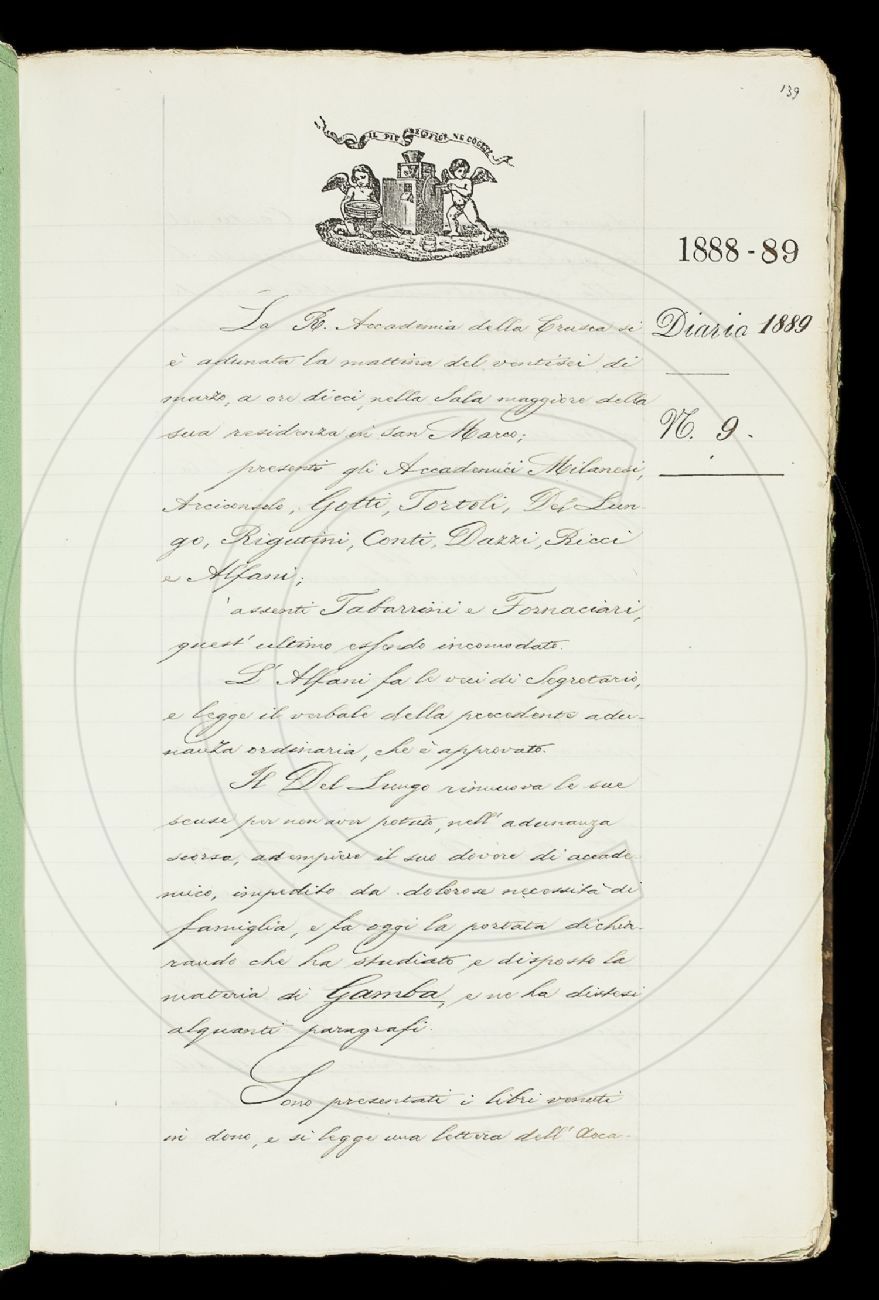 139
IL PIÙ BEL FIOR NE COGLIE
1888-89
Diario 1889
N. 9.
La R. Accademia della Crusca si
è adunata la mattina del ventisei di
marzo, a ore dieci, nella Sala maggiore della
sua residenza in San Marco;
presenti gli Accademici Milanesi,
Arciconsolo, Gotti, Tortoli, Del Lun-
go, Rigutini, Conti, Dazzi, Ricci
e Alfani;
assenti Tabarrini e Fornaciari,
quest' ultimo essendo incomodato.
L' Alfani fa le veci di Segretario,
e legge il verbale della precedente adu-
nanza ordinaria, che è approvato.
Il Del Lungo rinnuova le sue
scuse per non aver potuto, nell' adunanza
scorsa, adempiere il suo dovere di accade-
mico, impedito da dolorose necessità di
famiglia, e fa oggi la portata dichia-
rando che ha studiato e disposto la
materia di Gamba, e ne ha distesi
alquanti paragrafi.
Sono presentati i libri venuti
in dono, e si legge una lettera dell' Acca-